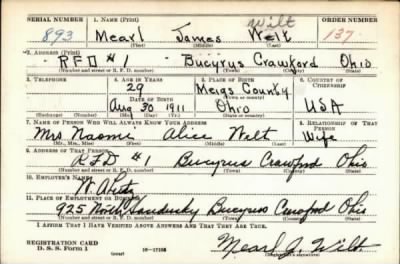 SERIAL NUMBER 1. NAME (Print) ORDER NUMBER
Wilt
893 Mearl James Welt 137
(First) (Middle) (Last)
2. ADDRESS (Print)
RFD #1 Bucyrus Crawford Ohio
(Number and street or R. F. D. number) (Town) (County) (State)
3. TELEPHONE 4. AGE IN YEARS 5. PLACE OF BIRTH 6. COUNTRY OF CITIZENSHIP
29 Meigs County
DATE OF BIRTH (Town or county)
Aug 30 1911 Ohio USA
(Exchange) (Number) (Mo.) (Day) (Yr.) (State or country)
7. NAME OF PERSON WHO WILL ALWAYS KNOW YOUR ADDRESS 8. RELATIONSHIP OF THAT PERSON
Mrs Naomi Alice Wilt Wife
(Mr., Mrs., Miss) (First) (Middle) (Last)
9. ADDRESS OF THAT PERSON
RFD #1 Bucyrus Crawford Ohio
(Number and street or R. F. D. number) (Town) (County) (State)
10. EMPLOYER'S NAME
11. PLACE OF EMPLOYMENT OR BUSINESS
925 North Sandusky Bucyrus Crawford Ohio
(Number and street or R. F. D. number) (Town) (County) (State)
I AFFIRM THAT I HAVE VERIFIED ABOVE ANSWERS AND THAT THEY ARE TRUE.
REGISTRATION CARD
D. S. S. Form 1
(over)
Mearl J. Wilt